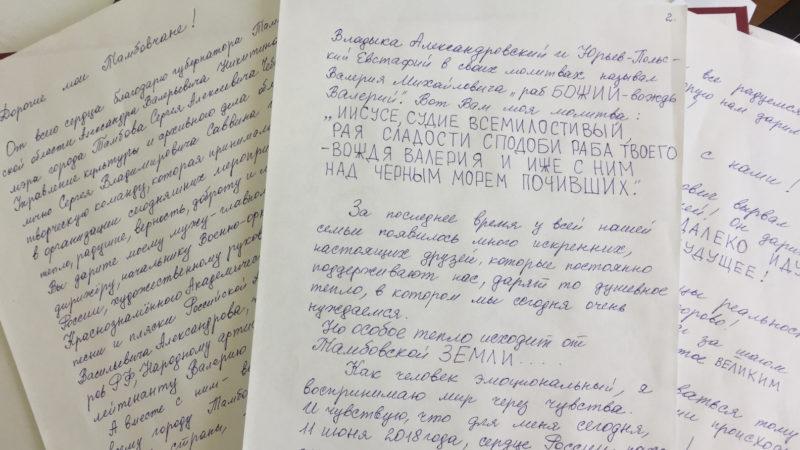 Дорогие мои Тамбовчане!
От всего сердца благодарю губернатора Там
ской области Александра Валерьевича Никитина
мэра города Тамбова Сергея Алексеевича Че
Управление культуры и архивного дела обл
лично Сергея Владимировича Саввина
творческую команду, которая принимала
в организации сегодняшних меропри
тепло, радушие, верность, доброту и
Вы дарите моему мужу - главно
дирижёру, начальнику Военно-ор
России, художественному руко
Краснознамённого Академиче
песни и пляски Российской
Васильевича Александрова,
ров РФ, Народному арти
лейтенанту Валерию
А вместе с ним -
всему городу Тамбо
страны,
2.
Владыка Александровский и Юрьев-Поль-
кий Евстафий в своих молитвах называл
Валерия Михайловича „раб БОЖИЙ-вождь
Валерий". Вот Вам моя молитва:
„ИИСУСЕ, СУДИЕ ВСЕМИЛОСТИВЫЙ,
РАЯ СЛАДОСТИ СПОДОБИ РАБА ТВОЕГО
-ВОЖДЯ ВАЛЕРИЯ И ИЖЕ С НИМ
НАД ЧЕРНЫМ МОРЕМ ПОЧИВШИХ."
За последнее время у всей нашей
семьи появилось много искренних,
настоящих друзей, которые постоянно
поддерживают нас, дарят то душевное
тепло, в котором мы сегодня очень
нуждаемся.
Но особое тепло исходит от
Тамбовской ЗЕМЛИ.....
Как человек эмоциональный, я
воспринимаю мир через чувства.
И чувствую, что для меня сегодня,
11 июня 2018 года, сердце России
вы радуемся
нам дарил
с нами!
вырвал
Он дари
ДАЛЕКО ИДУ
УДУЩЕЕ!
реальнос
орово!
за шагом
ВЕЛИКИМ
ваться тому
происхо